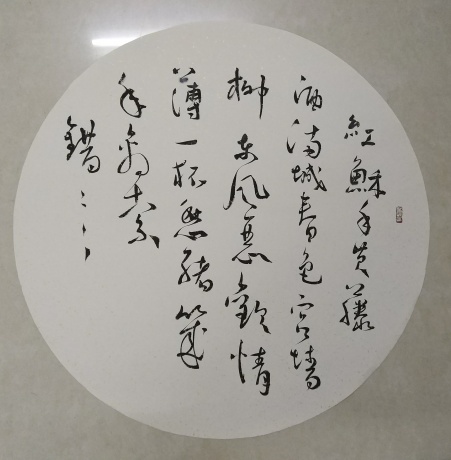 紅酥手黄藤
酒滿城春色宫墻
柳東風惡歡情
薄一杯愁緒幾
年離索
錯〻〻